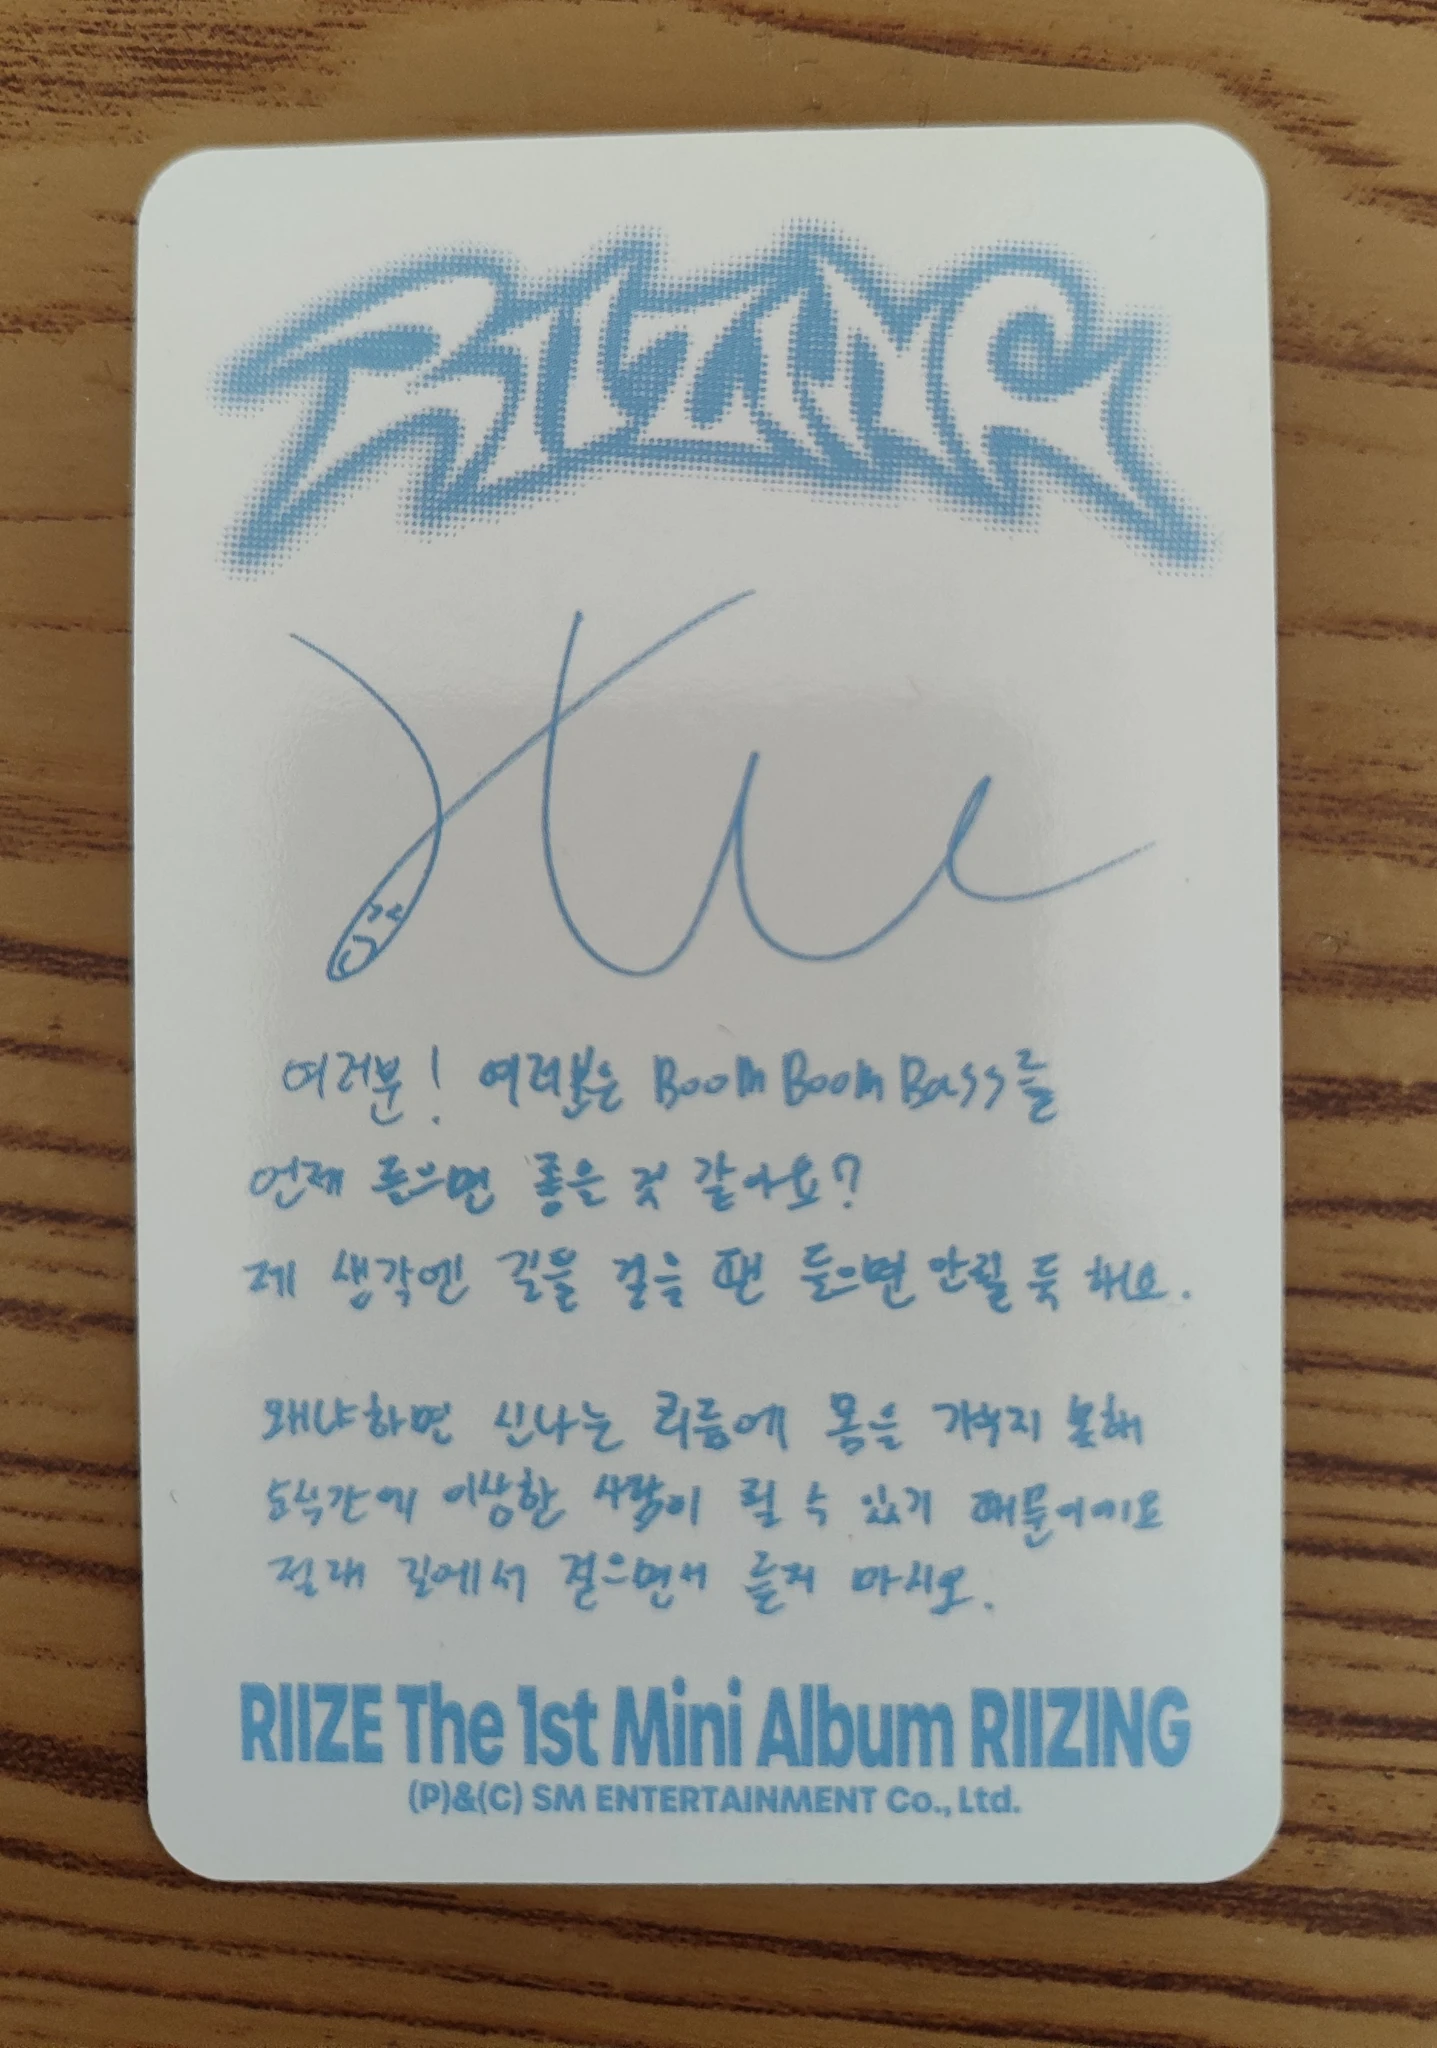 RIIZING
여러분! 여러분은 Boom Boom Bass를
언제 들으면 좋을 것 같아요?
제 생각엔 길을 걸을 땐 들으면 안될 듯 해요.
왜냐하면 신나는 리듬에 몸을 가누지 못해
순식간에 이상한 사람이 될 수 있기 때문이에요
절대 길에서 걸으면서 듣지 마시오.
RIIZE The 1st Mini Album RIIZING
(P)&(C) SM ENTERTAINMENT Co., Ltd.